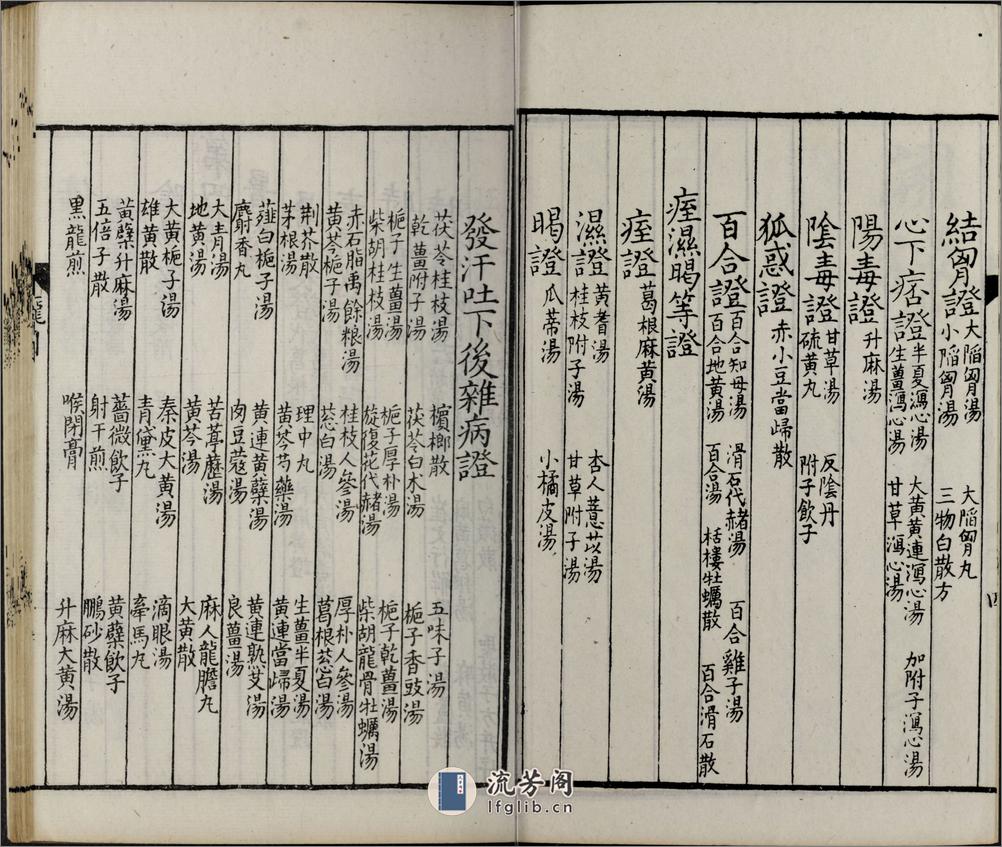 結胷證 大陷胷湯 大陷胷丸
小陷胷湯 三物白散方
心下痞證 半夏瀉心湯 大黃黃連瀉心湯 加附子瀉心湯
生薑瀉心湯 甘草瀉心湯
陽毒證 升麻湯
陰毒證 甘草湯 反陰丹
硫黃丸 附子飲子
狐惑證 赤小豆當歸散
百合證 百合知母湯 滑石代赭湯 百合雞子湯
百合地黃湯 百合湯 栝樓牡蠣散 百合滑石散
痓濕暍等證
痓證 葛根麻黃湯
濕證 黃耆湯 杏人薏苡湯
桂枝附子湯 甘草附子湯
暍證 瓜蒂湯 小橘皮湯
發汗吐下後雜病證
茯苓桂枝湯 檳榔散 五味子湯
乾薑附子湯 茯苓白朮湯 梔子香豉湯
梔子生薑湯 梔子厚朴湯 梔子乾薑湯
柴胡桂枝湯 旋復花代赭湯 柴胡龍骨牡蠣湯
赤石脂禹餘粮湯 桂枝人參湯 厚朴人參湯
黃芩梔子湯 葱白湯 葛根葱白湯
荆芥散 理中丸 生薑半夏湯
茅根湯 黃芩芍藥湯 黃連當歸湯
薤白梔子湯 黃連黃蘗湯 黃連熟艾湯
麝香丸 肉豆蔻湯 良薑湯
大青湯 苦葶藶湯 麻人龍膽丸
地黃湯 黃芩湯 大黃散
大黃梔子湯 秦皮大黃湯 滴眼湯
雄黃散 青黛丸 牽馬丸
黃蘗升麻湯 薔薇飲子 黃蘗飲子
五倍子散 射干煎 鵬砂散
黑龍煎 喉閉膏 升麻大黃湯
四
流芳阁
lfglib.cn